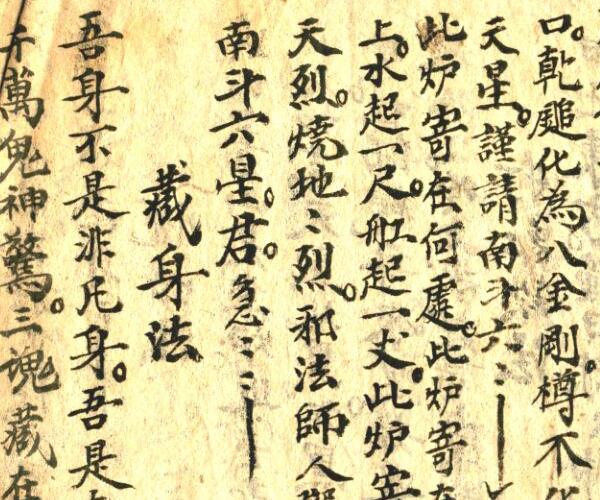 口。乾䰟化為八金剛。樽不
天星。謹請南斗六〻〻
此炉寄在何處。此炉寄在
上。水起一尺。舡起一丈。此炉寄
天烈。燒地〻烈。邪法師人
南斗六星。君。急〻〻〻
藏身法
吾身不是非凡身。吾是
千萬鬼神驚。三魂藏在